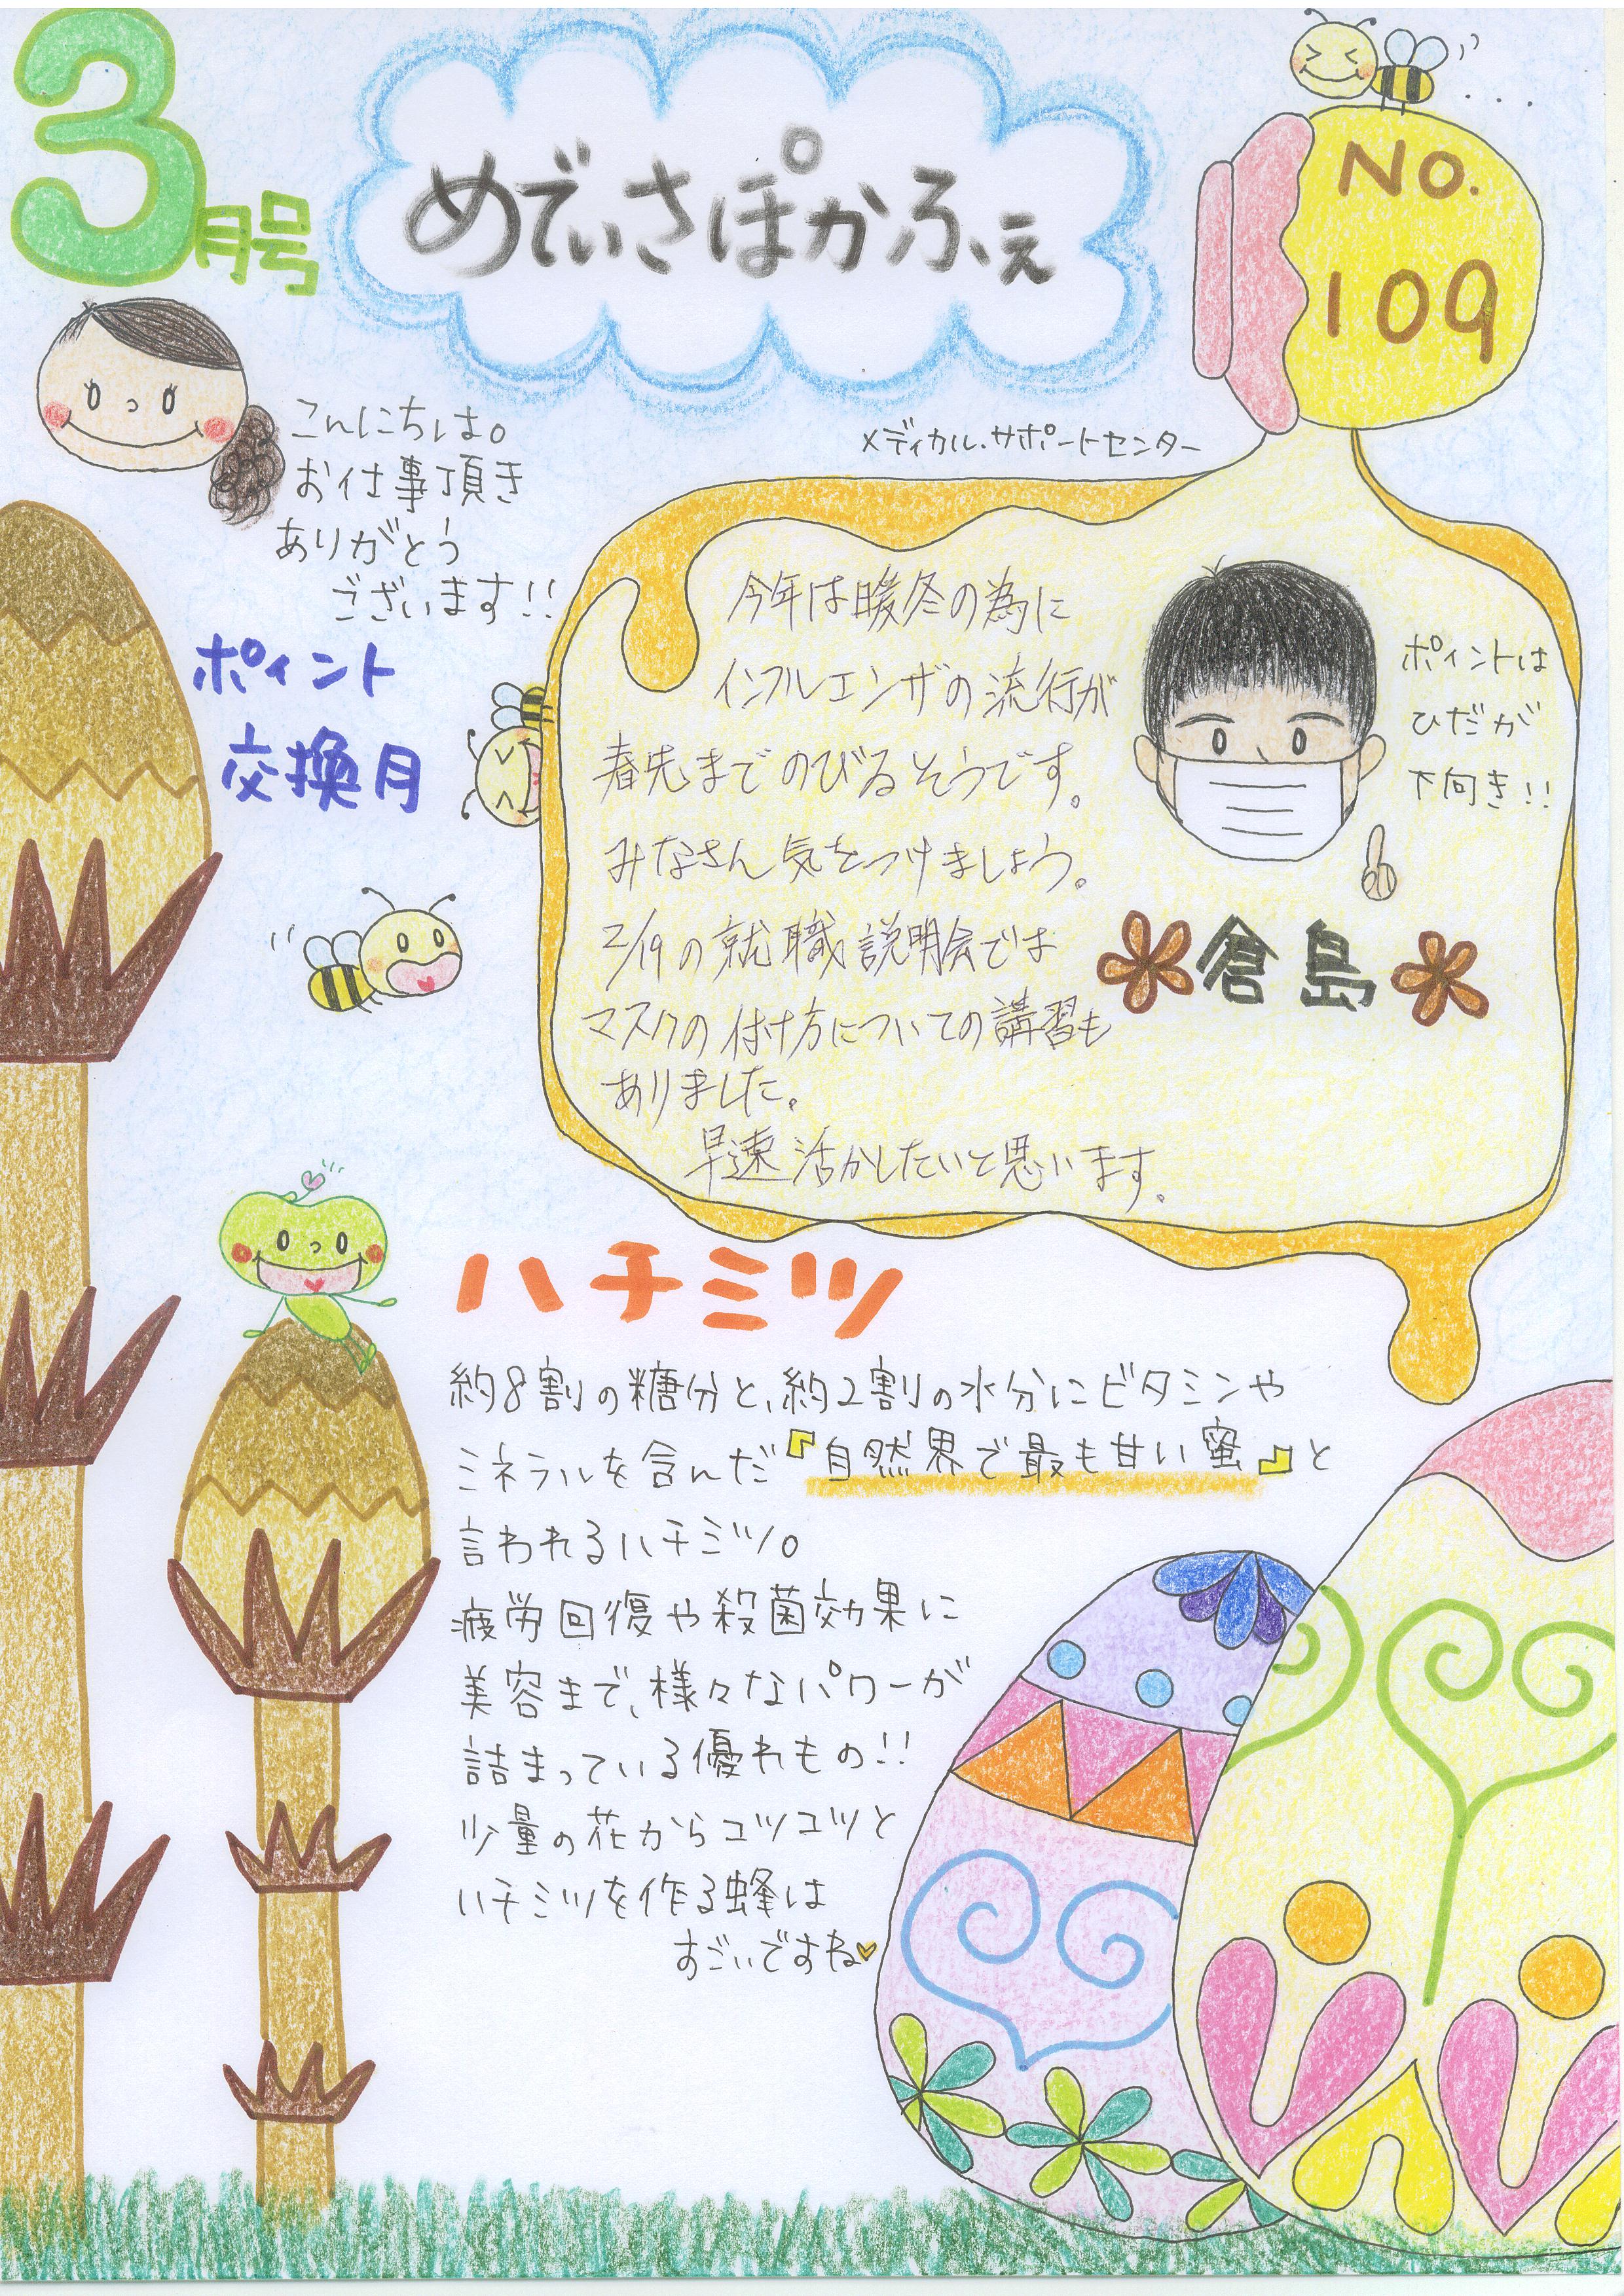 3月号
めでぃさぽかふぇ
No.
109
メディカル.サポートセンター
こんにちは。
お仕事頂き
ありがとう
ございます!!
ポイント
交換月
今年は暖冬の為に
インフルエンザの流行が
春先までのびるそうです。
みなさん気をつけましょう。
2/19の就職説明会では
マスクの付け方についての講習も
ありました。
早速活かしたいと思います。
ポイントは
ひだが
下向き!!
倉島
ハチミツ
約8割の糖分と、約2割の水分にビタミンや
ミネラルを含んだ『自然界で最も甘い蜜』と
言われるハチミツ。
疲労回復や殺菌効果に
美容まで、様々なパワーが
詰まっている優れもの!!
少量の花からコツコツと
ハチミツを作る蜂は
すごいですね